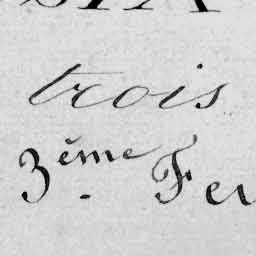 trois
3ème Fer